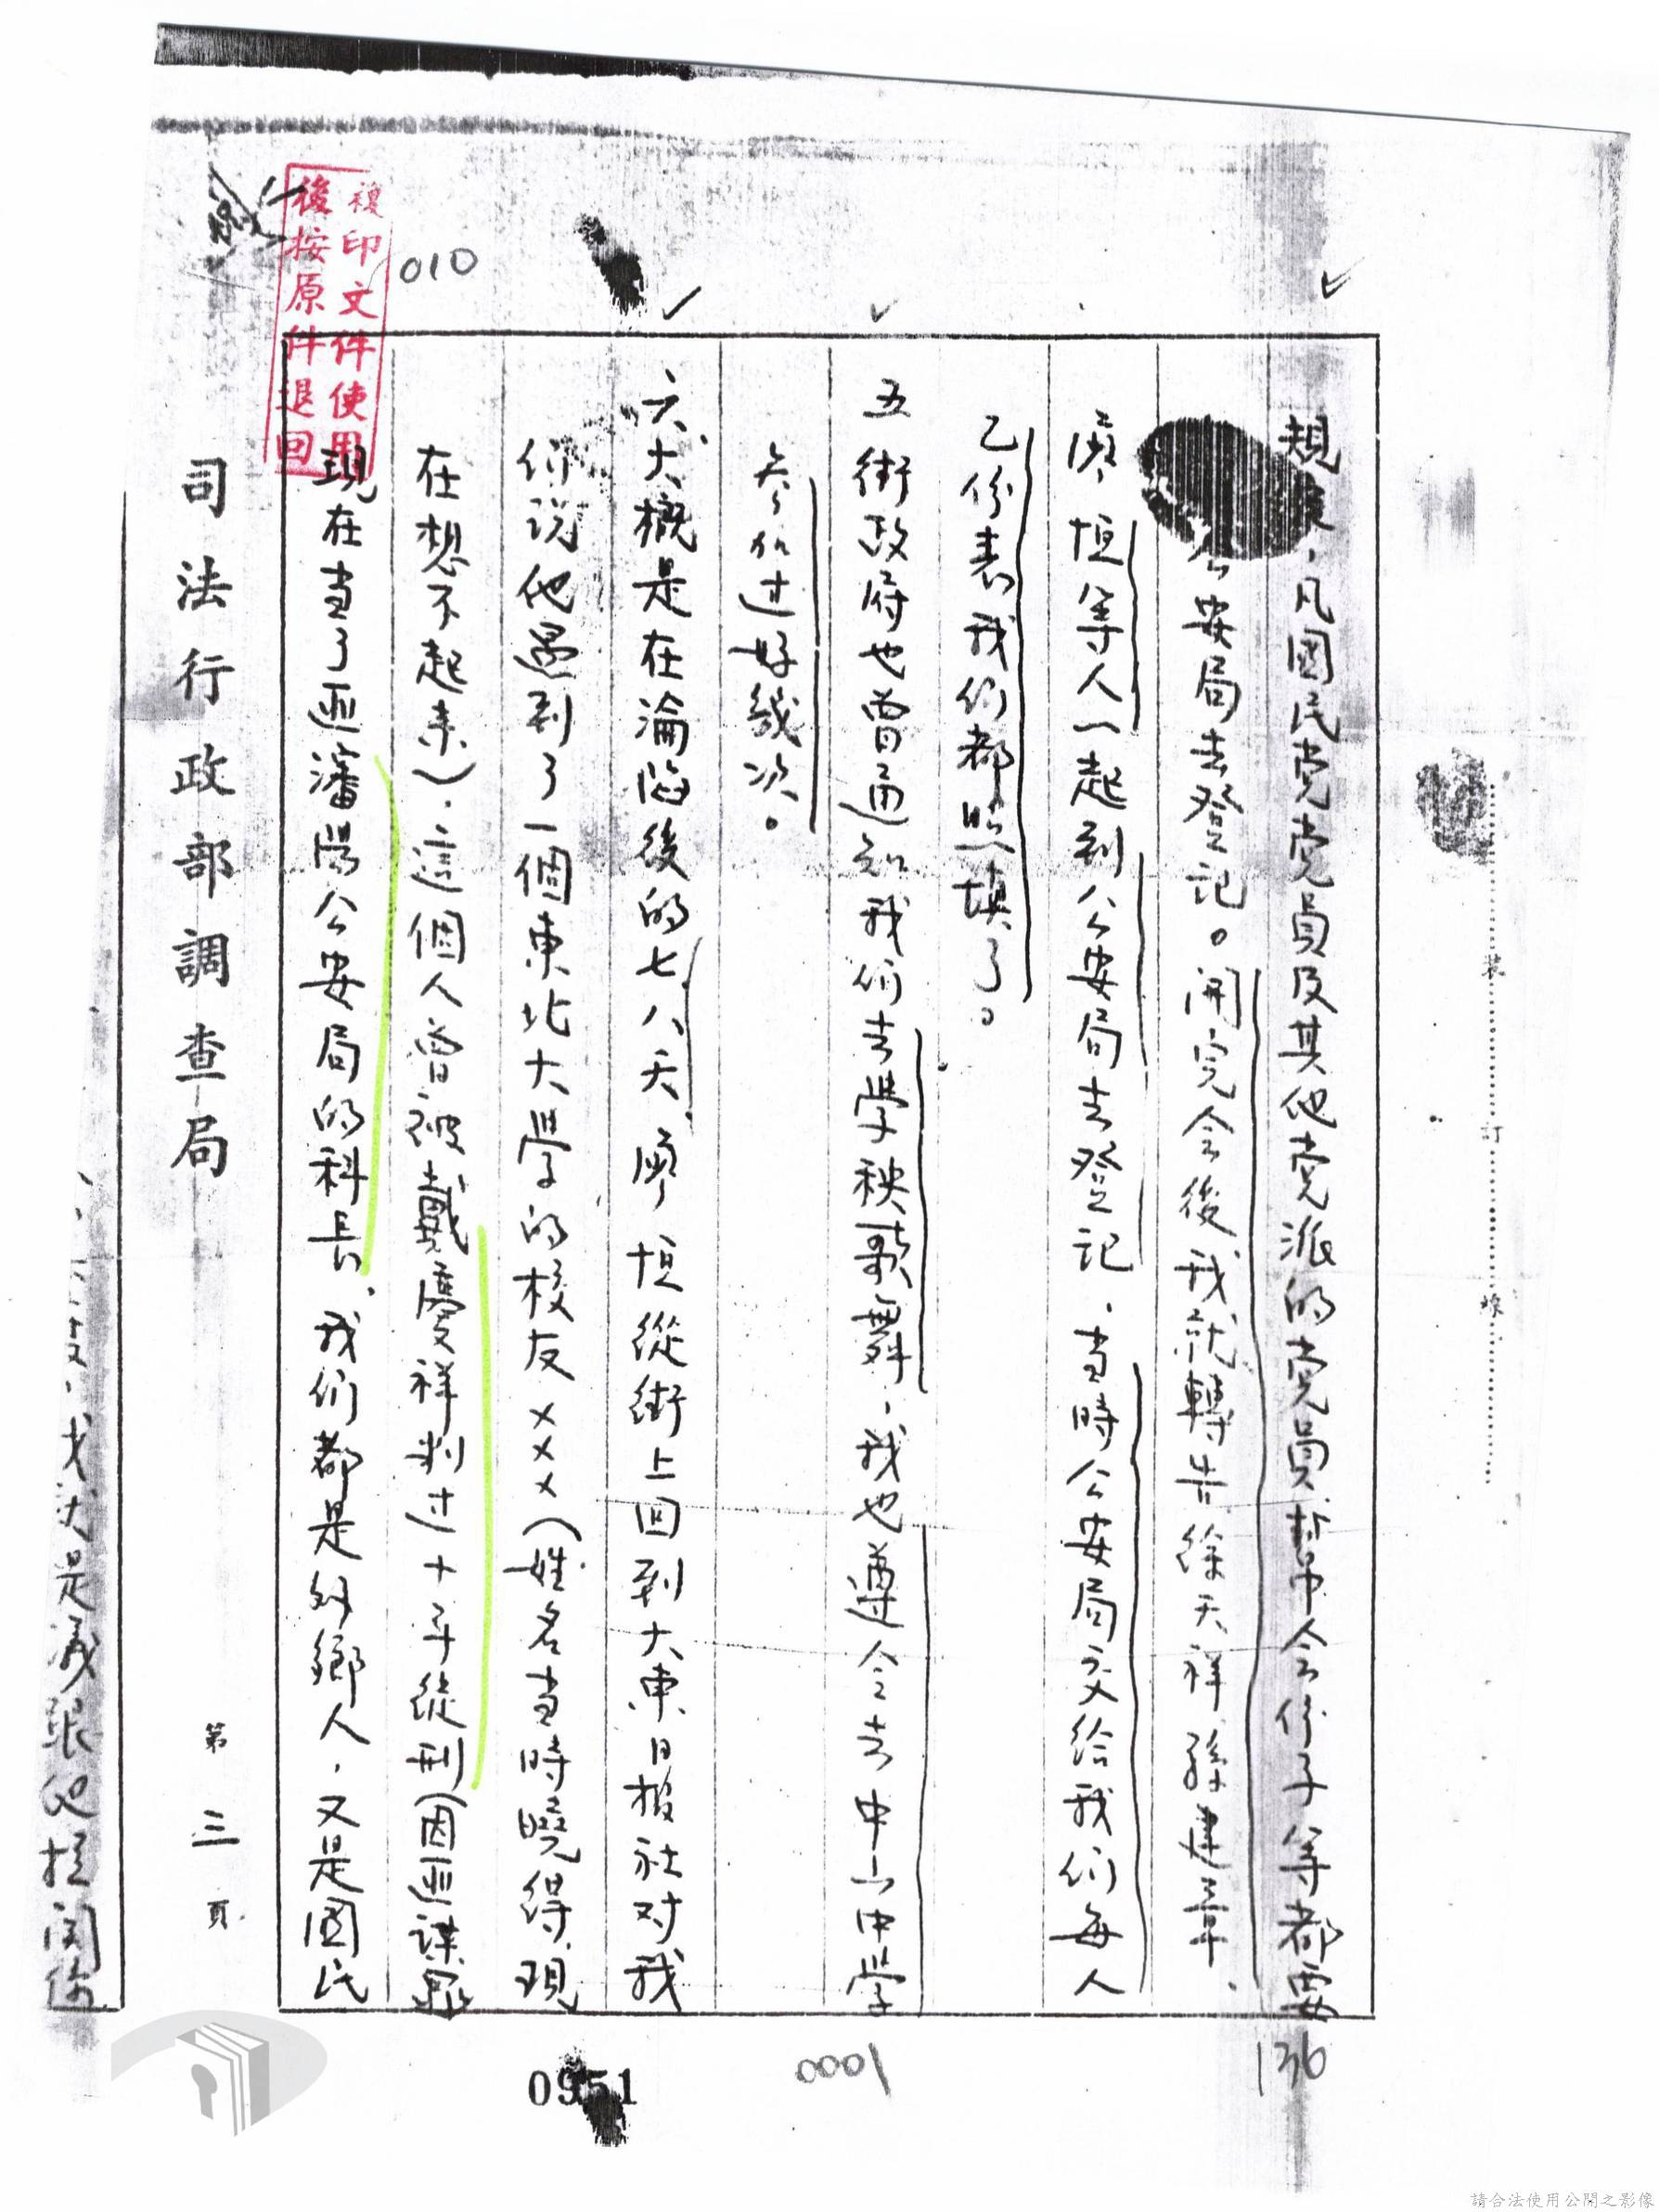 規定，凡國民党党員及其他党派的党員暫中令份子等都要
公安局去登記。開完会後我就轉告徐天祥孫建章、
廖恒等人一起到公安局去登記，当時公安局交給我们每人
乙份表我们都照填了。
五街政府也曾通知我们去學秧歌舞，我也遵令去中山中學
参加过好幾次。
六、大概是在淪陷後的七八天，廖恒從街上回到大東日報社对我
你说他遇到了一個東北大學的校友×××（姓名当時曉得，現
在想不起来）．這個人曾被戴慶祥判过十年徒刑（因匪諜罪
現在当了匪瀋陽公安局的科長，我们都是外鄉人，又是國民
司法行政部調查局
第三頁
是
複印文件使用
後按原件退回
010
裝
訂
線
136
1000
0951
請合法使用公開之影像